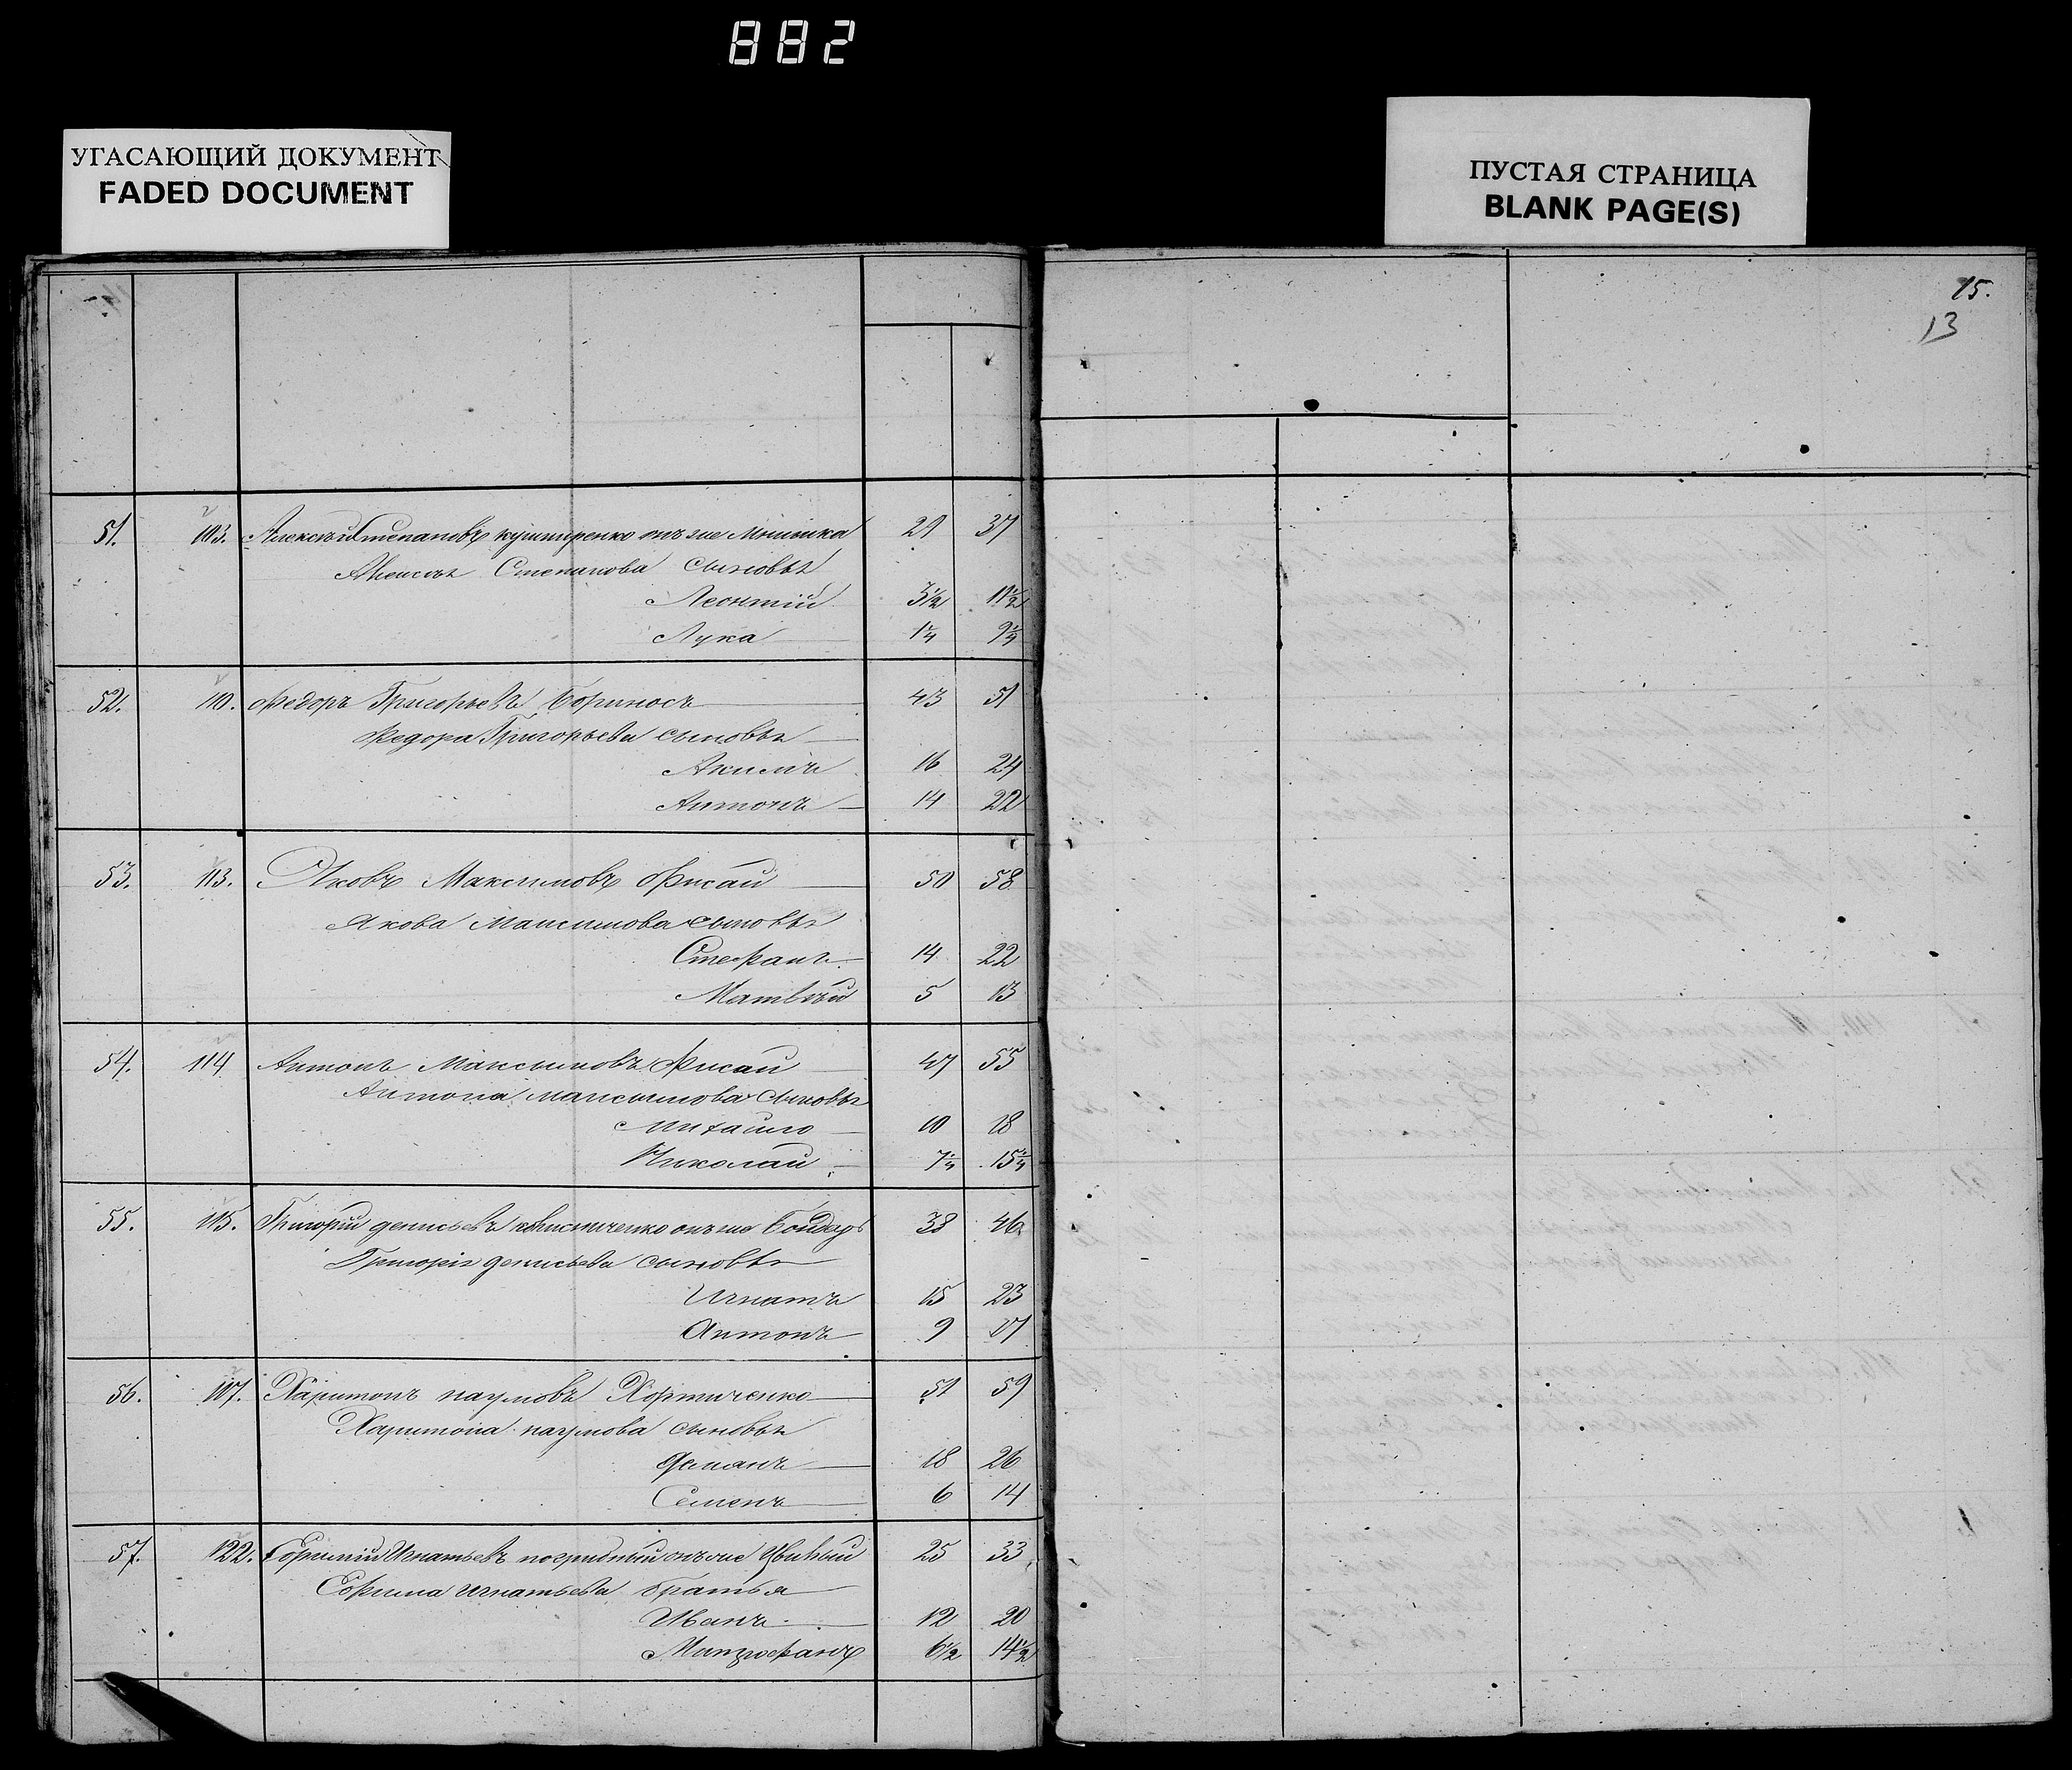 882
УГАСАЮЩИЙ ДОКУМЕНТ
FADED DOCUMENT
ПУСТАЯ СТРАНИЦА
BLANK PAGE(S)
15.
13
51. 103. Алексѣй Степановъ онъ же 29 37
Алексѣя Степанова сыновья
Леонтій 3½ 11½
Лука 1¼ 9¼
52. 110. Федоръ Григорьевъ Бориносъ 43 51
Федора Григорьева сыновья
Акимъ 16 24
Антонъ 14 22
53. 113. Яковъ Максимовъ Фисай 50 58
Якова Максимова сыновья
Стефанъ 14 22
Матвѣй 5 13
54. 114 Антонъ Максимовъ Фисай 47 55
Антона Максимова сыновья
Михайло 10 18
Николай 7¼ 15¼
55. 115. Григорій Денисьевъ онъ же Бондарь 38 46
Григорія Денисьева сыновья
Игнатъ 15 23
Антонъ 9 17
56. 117. Харитонъ Наумовъ Хортиченко 51 59
Харитона Наумова сыновья
18 26
Семенъ 6 14
57. 122. Ефимій Игнатьевъ онъ же 25 33
Ефима Игнатьева братья
Иванъ 12 20
Митрофанъ 6½ 14½